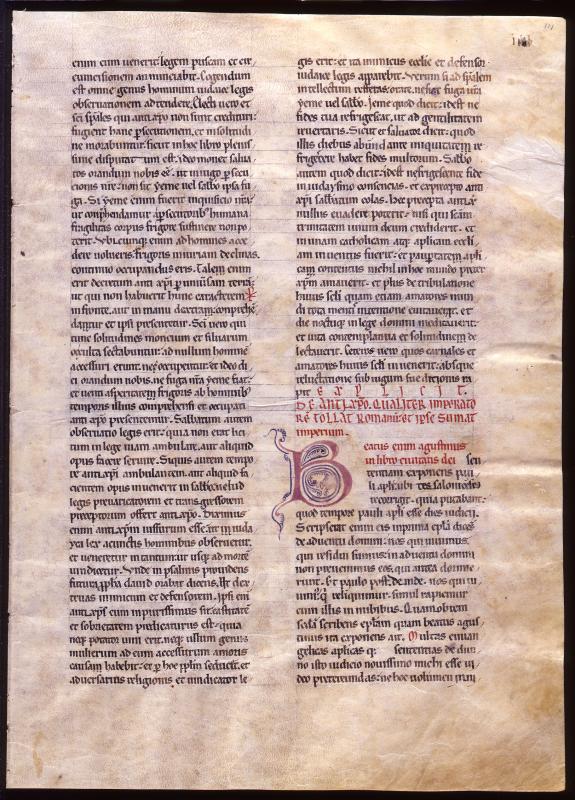 enim cum venerit legem priscam et cir
cumcisionem annunciabit. Cogendum
est omne genus hominum iudaice legis
observationem adtendere. Electi vero et
sci sp̄ales qui antixp̄o non sunt credituri
fugient hanc p̄secutionem. et in solitudi
ne morabuntur. sicut in hoc libro plenis
sime disputatum est. ideo monet salva
tor orandum nobis
cucionis nr̄e non sit yeme vel sabb̄o ip̄sa fu
ga. Si yeme enim fuerit inquisicio nr̄a
ut conp̄hendamur a p̄secutorib; humana
fragilitas corpus frigore sustinere non po
terit. Ubicunq; enim ad homines acce
dere volueris frigoris iniuriam declinas.
continuo occupandus eris. Talem enim
erit decretum antixp̄i
ut qui non habuerit hunc caracterem
in fronte. aut in manu dexteram. comprehē
dantur et ipsi presentetur. Sci vero qui
tunc solitudines moncium et silvarum
occulta sectabuntur. ad nullum hominē
accessuri erunt. nec occupentur. et ideo di
ci orandum nobis. ne fuga nr̄a yeme fiat.
et venti asperitatem frigoris ab hominib;
temporis illius comprehensi et occupati
antixp̄o presentemur. Sabbatum autem
observatio legis erit. quia non erat lici
tum in lege iā ambulare. aut aliquid
opus facere servire. Siquis autem tempo
re antixp̄i ambulantem. aut aliquid fa
cientem opus invenerit in sabb̄o. eum
legis prevaricatorem et transgressorem
preceptorum offert antixp̄o. Diximus
enim antixp̄m iussurum esse. ut iuda
yca lex a cunctis hominibus observetur.
et veneretur in tantum. ut usq; ad mortē
vindicetur. Unde in psalmis providens
futura p̄pha david orabat dicens. Ut des
truas inimicum et defensorem. Ipse eni
antixp̄s cum inpurissimus sit. castitatē
et sobrietatem predicaturus est. quia
neq; potator vini erit. neq; ullum genus
mulierum ad eum accessurum amoris
causam habebit. et p̄ hoc pp̄lm seducet. et
adversarius religionis et vindicator le
gis erit. et ita inimicus ecclie et defensor
iudaice legis apparebit. Verum si ad sp̄alem
intellectum orate. ne fiat fuga vr̄a
yeme vel sabb̄o. yeme quod dicit. idest ne
fides tua refrigescat. ut ad gentilitatem
revertaris. Sicut et salvator dicit. quod
illis diebus abundante iniquitatem re
frigescere habet fides multorum. Sabb̄o
autem quod dicit. idest ne frigescente fide
in iudaysmo consencias. et ex precepto anti
xp̄i sabbatum colas. Hec precepta antixp̄i
nullus evadere poterit. nisi qui scām
trinitatem unum deum crediderit. et
in unam catholicam atq; aplicam eccli
am inventus fuerit. et paupertatem apli
cam contentus nichil in hoc mundo preter
xp̄m amaverit. et plus de tribulatione
huius scli quam etiam amatores mun
di tota mentis intentione cantaverit. et
die noctuq; in lege domini meditaverit.
et vita contemplativa et solitudinem de
lectaverit. Ceteros vero quos carnales et
amatores huius scli invenerit. absque
reluctatione sub iugum sue dicionis ra
piet. EXPLICIT.
DE ANTIXP̄O. QUALITER IMPERATO
RE TOLLAT ROMANUM. ET IPSE SUMAT
imperium.
Beatus enim agustinus
in libro civitatis dei sen
tentiam exponens pau
li apli. ubi tesalonicēses
recorrigit. quia putabant.
quod tempore pauli apli esse dies iudicii.
Scripserat enim eis in prima ep̄la dicēs
de adventu domini. nos qui vivimus.
qui residui sumus. in adventu domini
non preveniemus eos. qui antea dormie
runt. Et paulo post. deinde. nos qui vi
vimus. q̄ relinquimur. simul rapiemur
cum illis in nubibus. Quam obrem
scdā scribens ep̄lam quam beatus agus
tinus ita exponens ait. Multas evvan
gelicas aplicas q; sentencias de divi
no isto iudicio novissimo michi esse vi
deo pretereundas. ne hoc volumen in ni